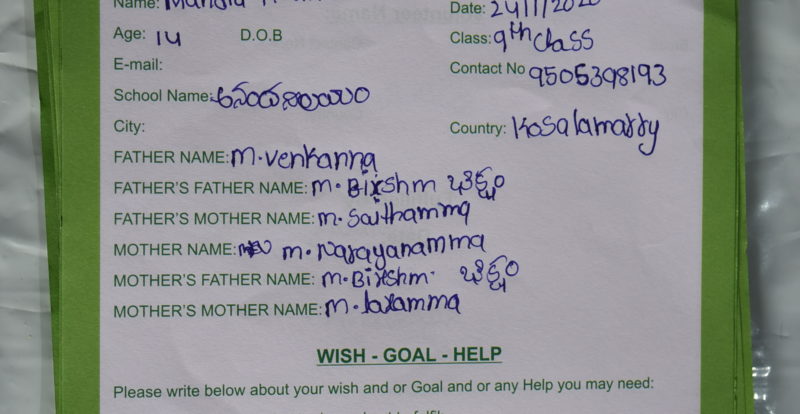 Name: Manoja
Date: 24/11/2020
Age: 14 D.O.B
Class: 9th class
E-mail:
Contact No 9505398193
School Name: ఆనందనిలయం
City:
Country: Kosalamarry
FATHER NAME: M. Venkanna
FATHER'S FATHER NAME: M. Bixshm బిక్షం
FATHER'S MOTHER NAME: M. Saithamma
MOTHER NAME: M. Narayanamma
MOTHER'S FATHER NAME: M. Bixshm. బిక్షం
MOTHER'S MOTHER NAME: M. laxamma
WISH - GOAL - HELP
Please write below about your wish and or Goal and or any Help you may need: